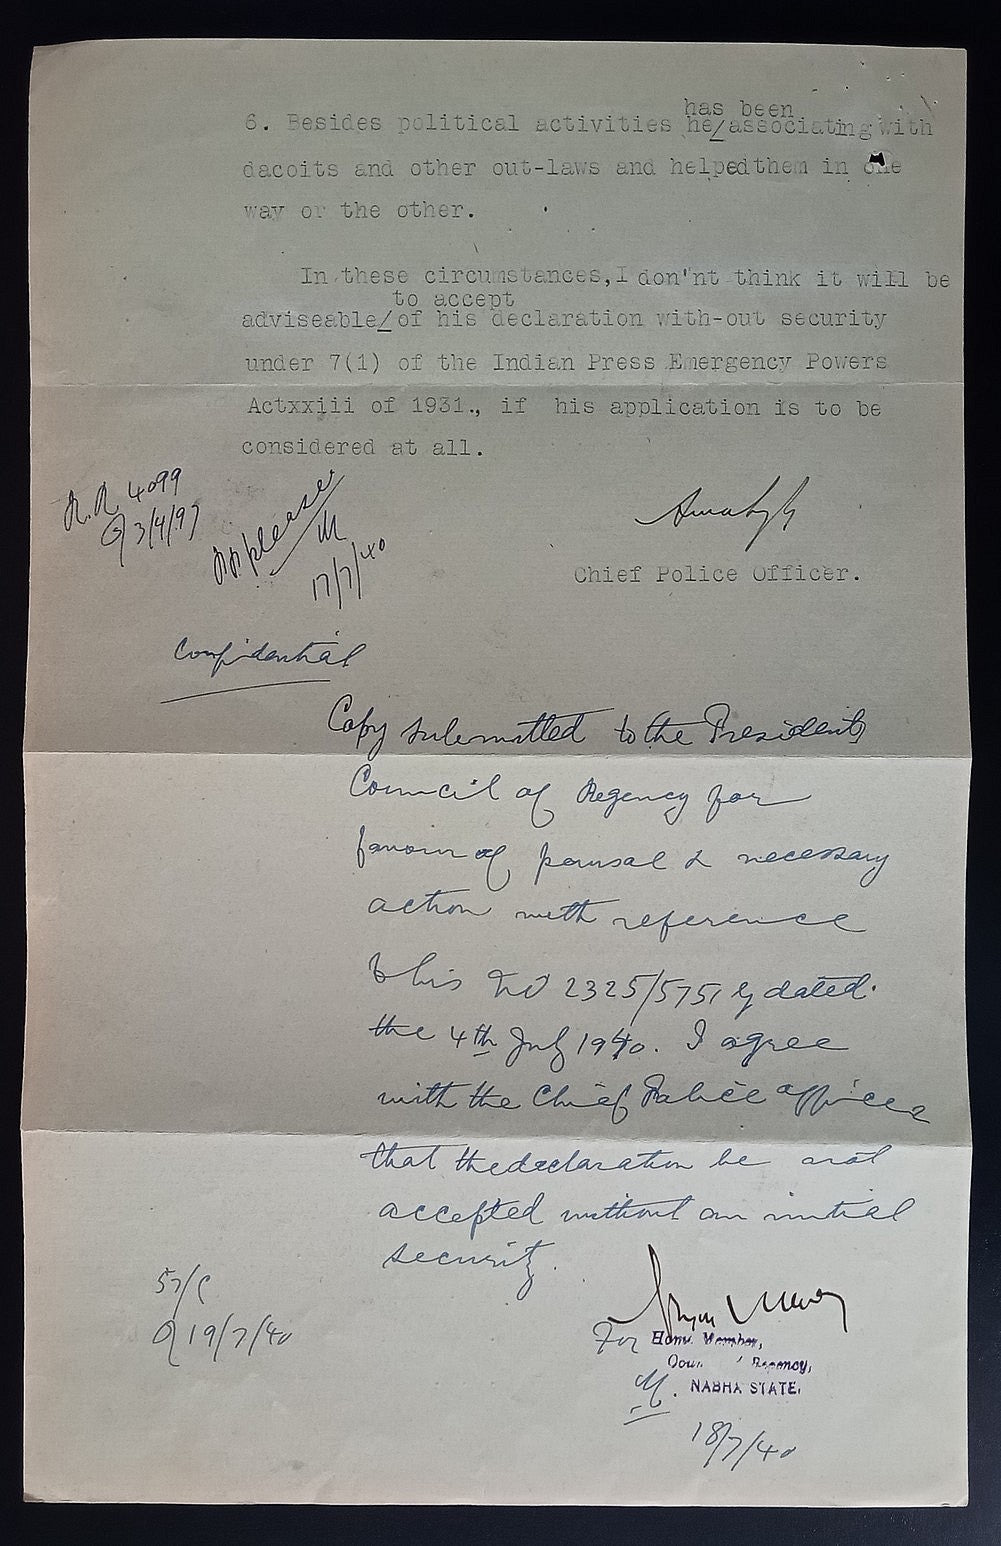 has been
6. Besides political activities he/associating with
dacoits and other out-laws and helpedthem in one
way or the other.
In these circumstances,I don'nt think it will be
to accept
adviseable/of his declaration with-out security
under 7(1) of the Indian Press Emergency Powers
Actxxiii of 1931., if his application is to be
considered at all.
4099
17/7/40
Chief Police Officer.
Confidential
Copy submitted to the Presidents
Council of Regency for
favour of perusal & necessary
action with reference
to his No 2325/5751 dated
the 4th July 1940. I agree
with the Chief Police Officer
that the declaration be not
accepted without an initial
security.
57/C
19/7/40
For Home Member,
Regency,
NABHA STATE.
18/7/40